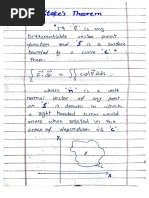 Stoke's Theorem
"If 'F' is any
Differentiable vector point
function and 'S' is a surface
bounded by a curve 'C'
Then
∫ F . dr = ∬ curl F . n ds
where 'n' is a unit
normal vector at any point
on S is drawn in which
a right handed screw would
move when rotated in the
sense of description of 'C'